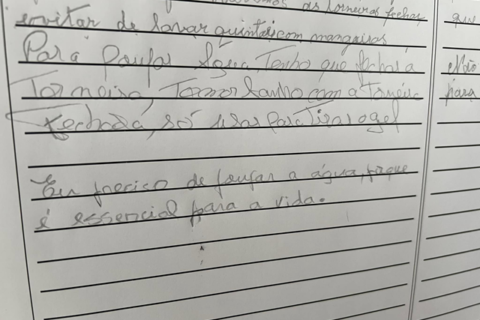 as torneiras fechar,
evitar de lavar quintal com mangueiras
Para Poupar Água, Tenho que fechar a
Torneira, Tomar banho com a Torneira
fechada, só usar para Tirar o gel
Eu preciso de poupar a água, porque
é essencial para a vida.
que
Não
para